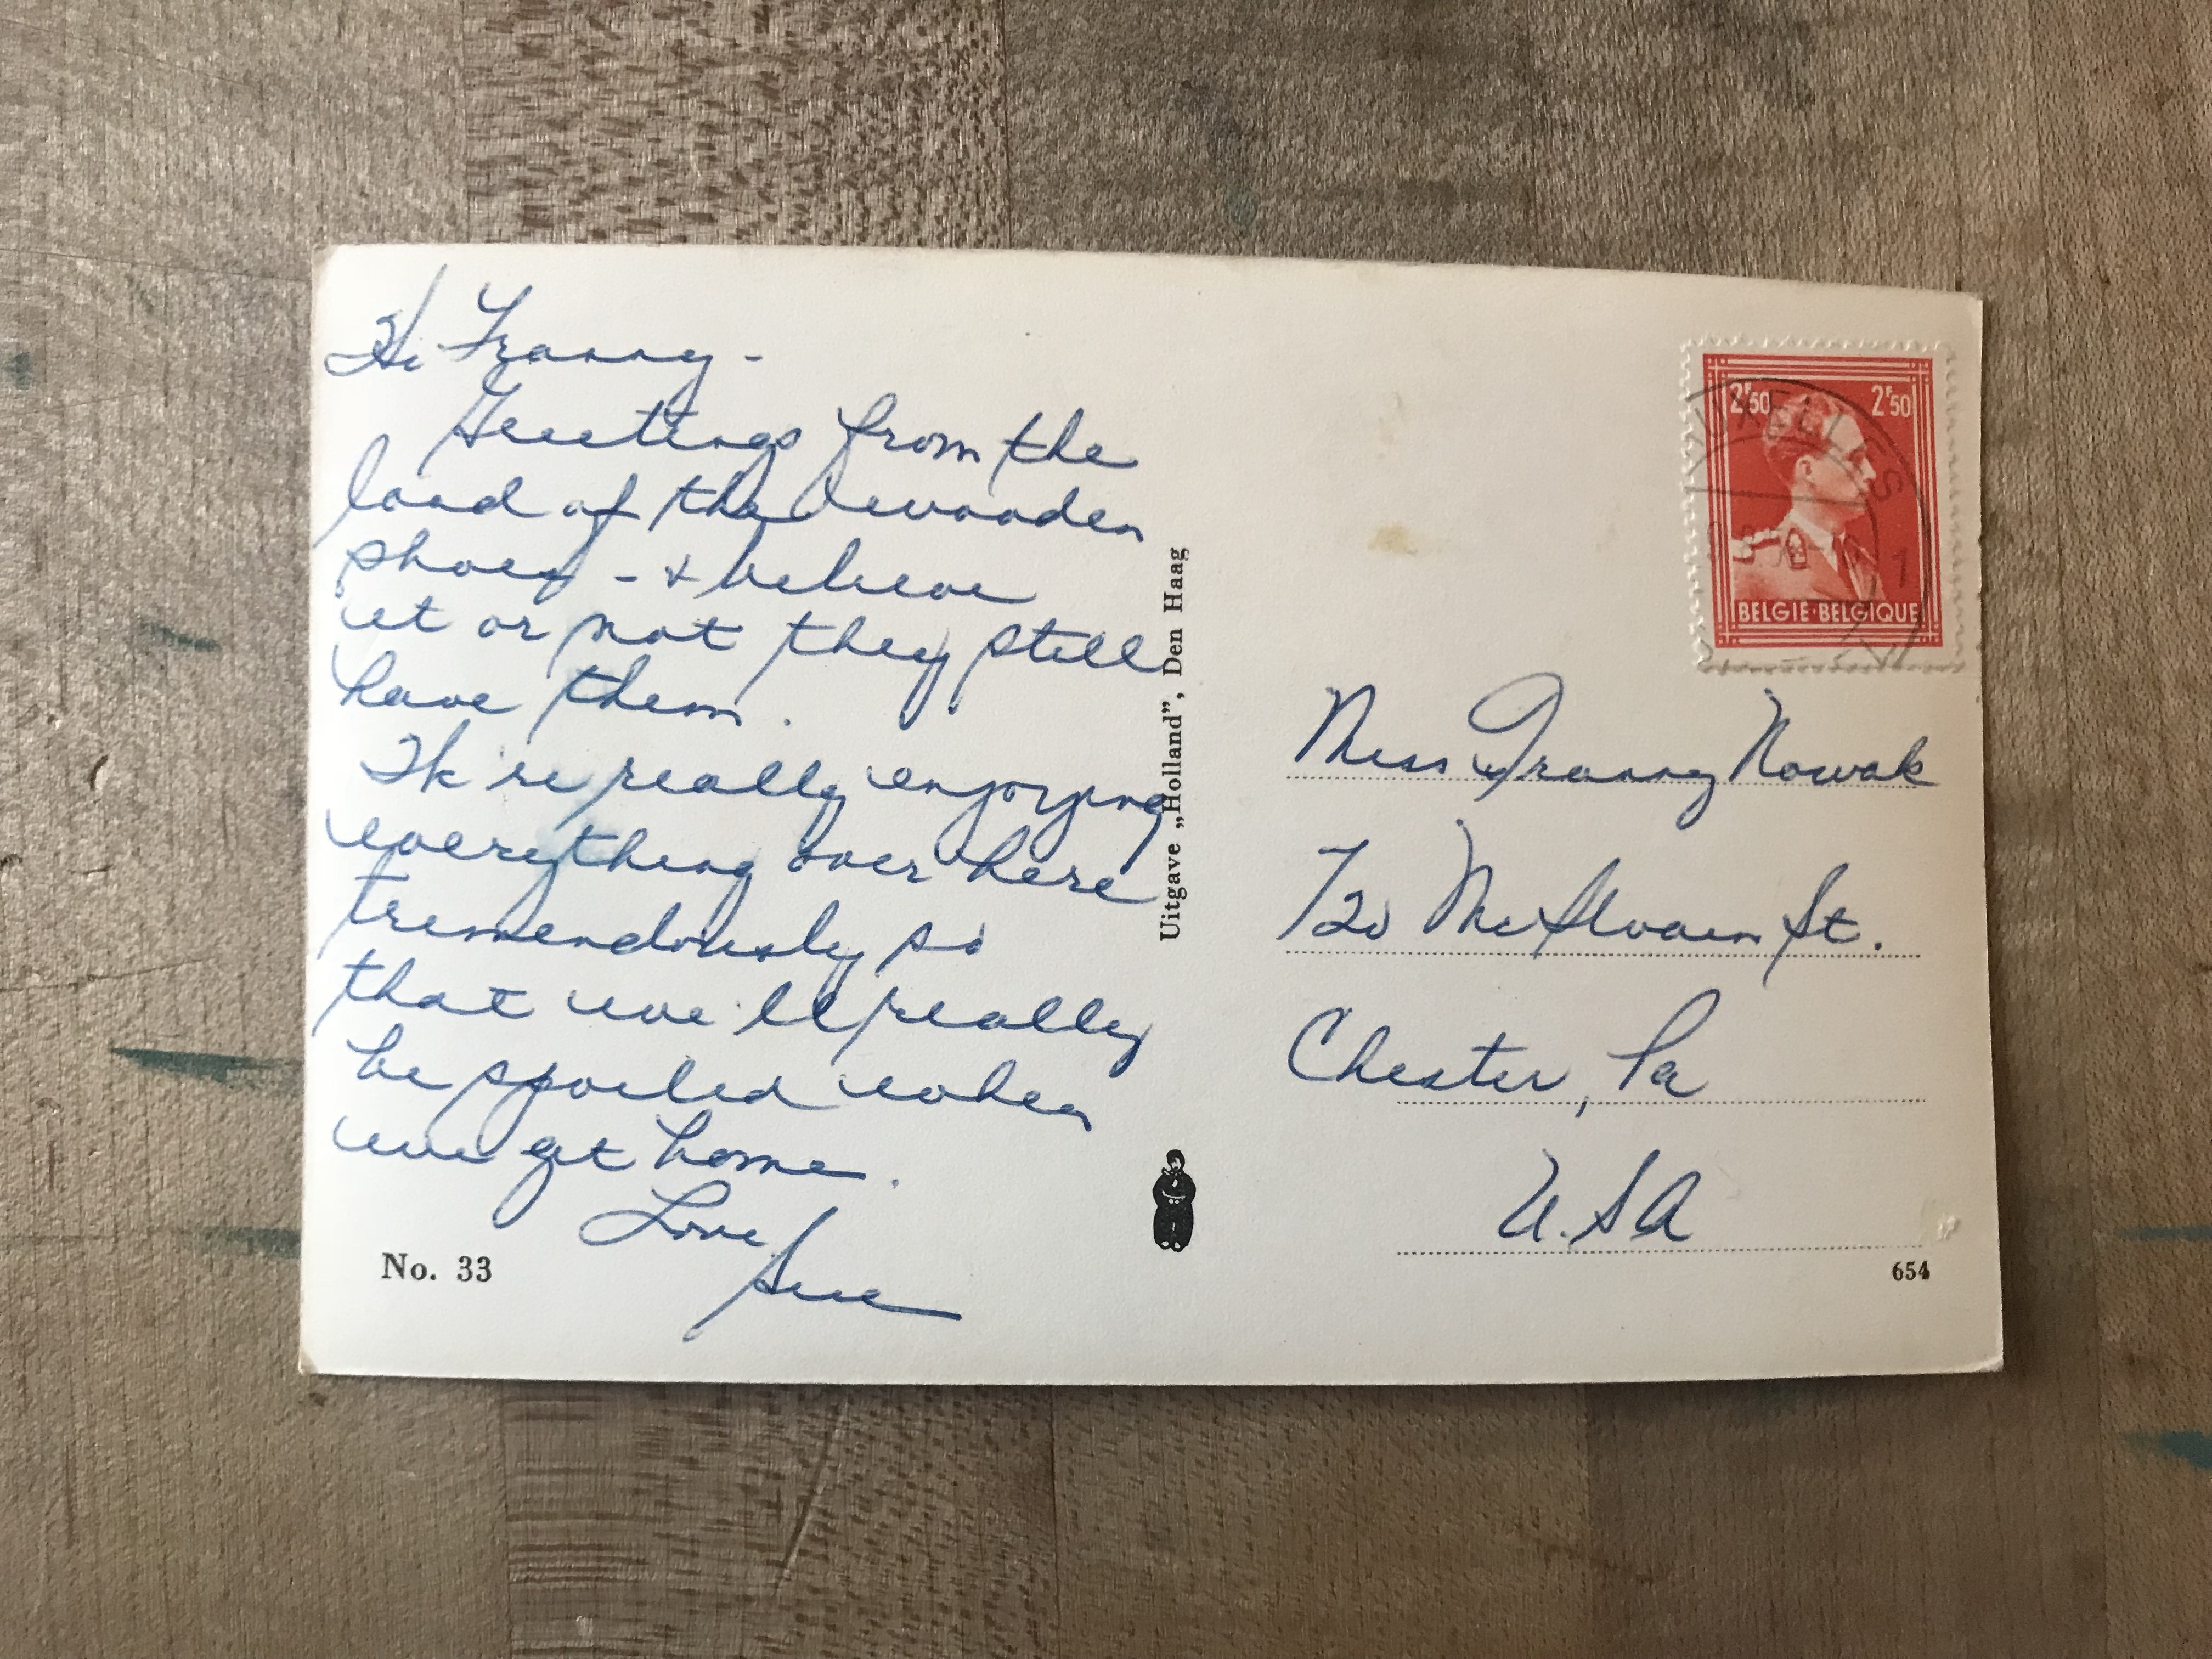 Hi Franny -
Greetings from the
land of the wooden
shoes - & believe
it or not they still
have them.
We're really enjoying
everything over here
tremendously so
that we'll really
be spoiled when
we get home.
Love,
Sue
No. 33
Uitgave „Holland”, Den Haag
2F50 2F50
BELGIË·BELGIQUE
Miss Franny Nowak
720 McIlvain St.
Chester, Pa
U.S.A
654